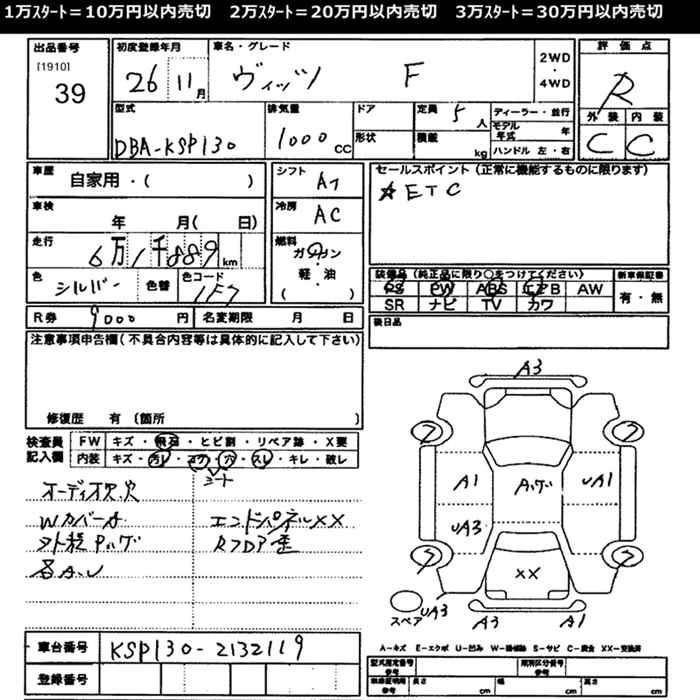 1万ｽﾀｰﾄ＝10万円以内売切　2万ｽﾀｰﾄ＝20万円以内売切　3万ｽﾀｰﾄ＝30万円以内売切
出品番号
[1910]
39
初度登録年月
26 11月
車名・グレード
ヴィッツ F
2WD
・
4WD
評価点
R
外装 内装
C C
型式
DBA-KSP130
排気量
1000 CC
ドア
形状
定員 5人
積載 kg
ディーラー・並行
モデル年式 年
ハンドル 左・右
車歴
自家用・( )
車検
年 月( 日)
走行
6万1千889km
色
シルバー
色替
色コード
1F7
シフト
AT
冷房
AC
燃料
ガソリン
・
軽・油
( )
セールスポイント (正常に機能するものに限ります)
☆ETC
装備品 (純正品に限り○をつけてください)
PS PW ABS エアB AW
SR ナビ TV カワ
新車保証書
有・無
後日品
R券 9000円
名変期限 月 日
注意事項申告欄(不具合内容等は具体的に記入して下さい)
修復歴 有 (箇所 )
検査員
記入欄
FW キズ・飛石・ヒビ割・リペア跡・X要
内装 キズ・汚レ・コゲ・穴・スレ・キレ・破レ
シート
オーディオ欠.穴
Wカバーナ
外程Pハゲ
各A.U
エンドパネルXX
Rフロア歪
A3
A1
Aハゲ
UA1
UA3
XX
スペア
UA3
A3
A1
A－キズ E－エクボ U－凹み W－補修跡 S－サビ C－腐食 XX－交換済
車台番号
KSP130-2132119
登録番号
型式指定番号
参考
類別区分番号
参考
車体証明用
参考
長さ cm
幅 cm
高さ cm